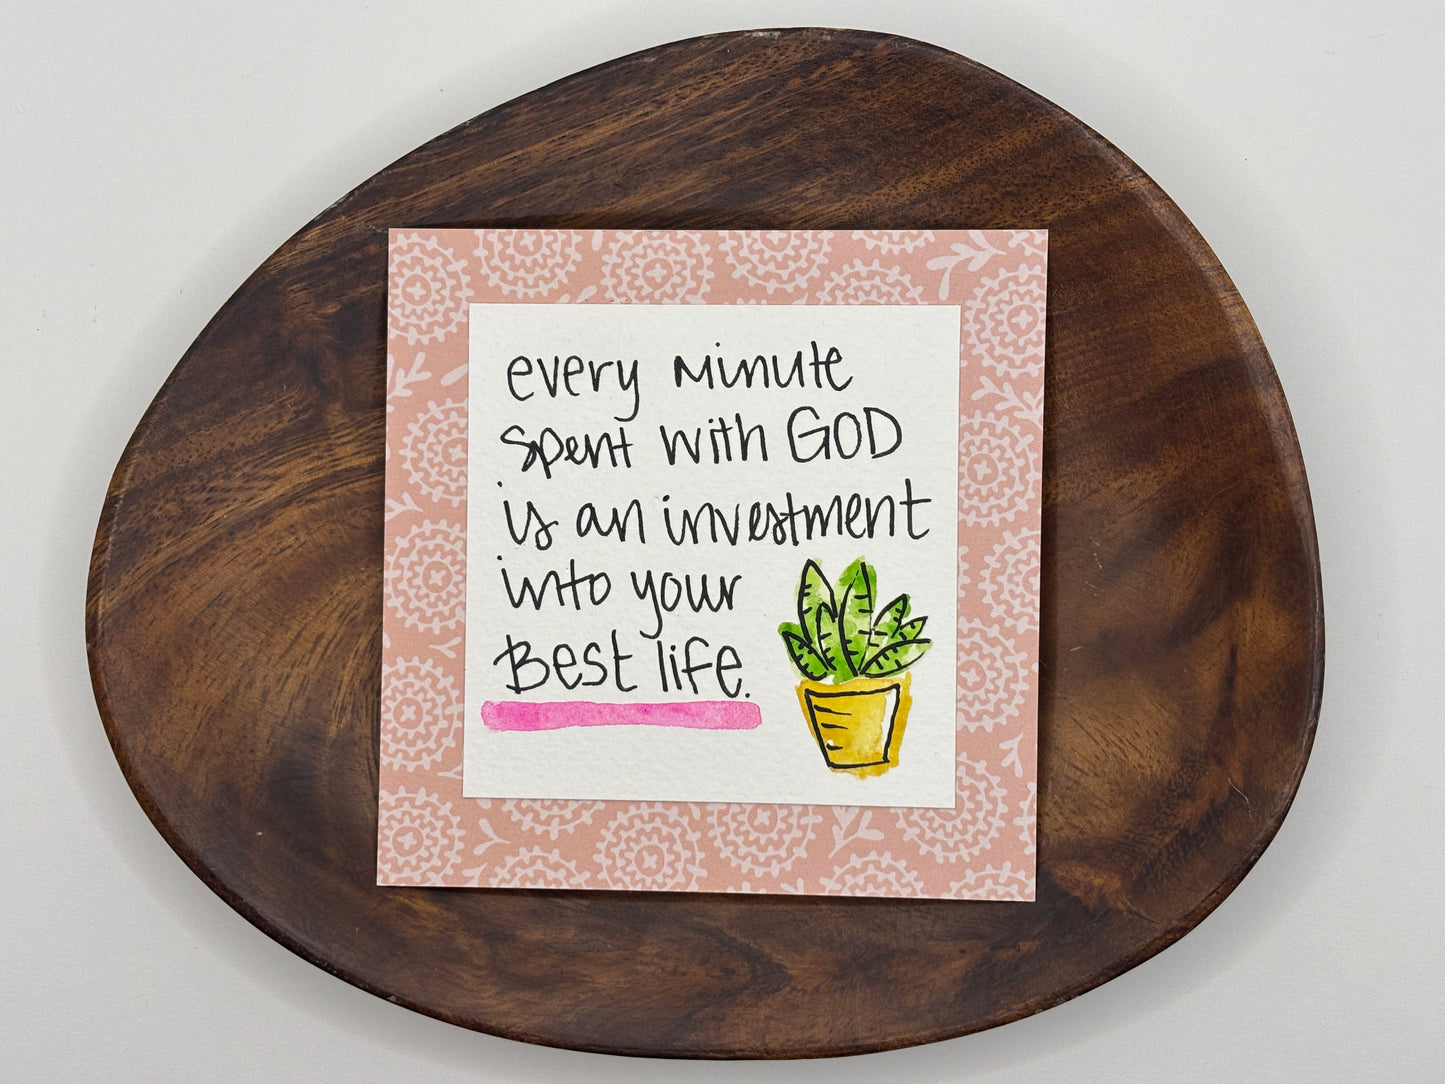 every minute
spent with GOD
is an investment
into your
Best life.